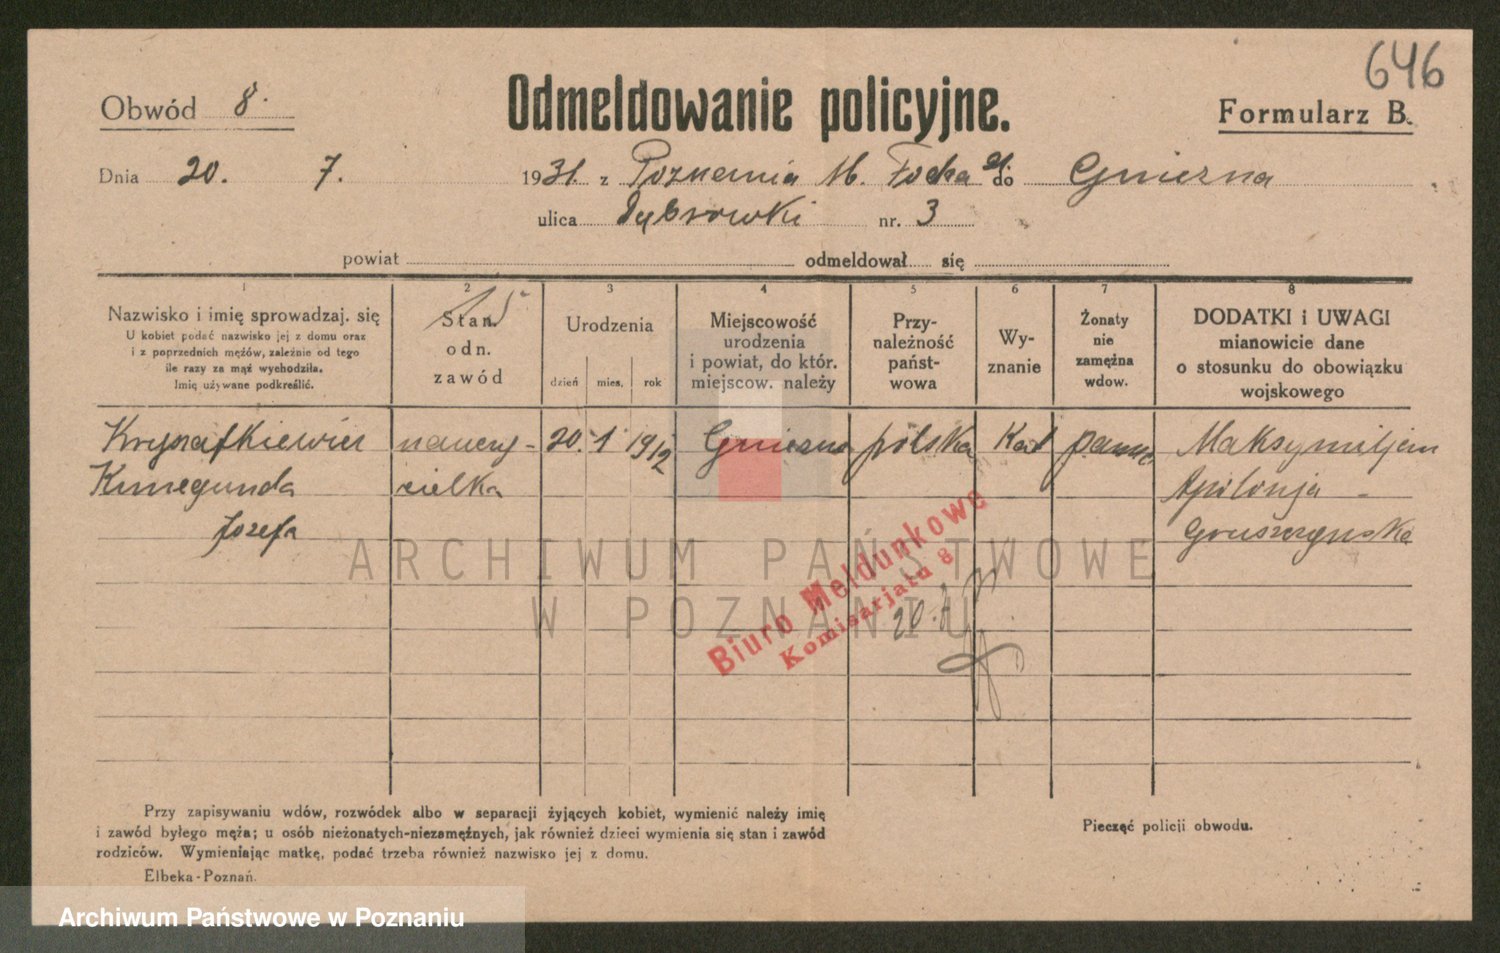 646
Obwód 8.
Odmeldowanie policyjne.
Formularz B.
Dnia 20. 7. 1931. z Poznania M. Focha do Gniezna
ulica nr. 3
powiat odmeldował się
1 2 3 4 5 6 7 8
Nazwisko i imię sprowadzaj. się
U kobiet podać nazwisko jej z domu oraz
i z poprzednich mężów, zależnie od tego
ile razy za mąż wychodziła.
Imię używane podkreślić.
Stan.
odn.
zawód
Urodzenia
dzień mies. rok
Miejscowość
urodzenia
i powiat, do któr.
miejscow. należy
Przy-
należność
państ-
wowa
Wy-
znanie
Żonaty
nie
zamężna
wdow.
DODATKI i UWAGI
mianowicie dane
o stosunku do obowiązku
wojskowego
nauczy- 20. 1 1912 Gniezno polska Kat panna Maksymiljan
Kunegunda cielka Apolonja -
Józefa Gruszczyńska
ARCHIWUM PAŃSTWOWE
W POZNANIU
Biuro Meldunkowe
Komisarjatu 8
20. 7.
Przy zapisywaniu wdów, rozwódek albo w separacji żyjących kobiet, wymienić należy imię
i zawód byłego męża; u osób nieżonatych-niezamężnych, jak również dzieci wymienia się stan i zawód
rodziców. Wymieniając matkę, podać trzeba również nazwisko jej z domu.
Pieczęć policji obwodu.
Elbeka-Poznań.
Archiwum Państwowe w Poznaniu